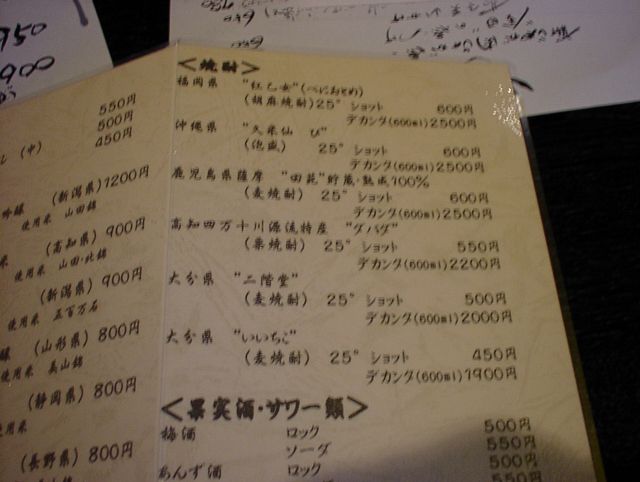 950
900
550円
500円
(中) 450円
(新潟県) 1200円
使用米 山田錦
(高知県) 900円
使用米 山田・北錦
(新潟県) 900円
使用米 五百万石
(山形県) 800円
使用米 美山錦
(静岡県) 800円
使用米
(長野県) 800円
<焼酎>
福岡県 "紅乙女"(べにおとめ)
(胡麻焼酎) 25° ショット 600円
デカンタ(600ml) 2500円
沖縄県 "久米仙 び"
(泡盛) 25° ショット 600円
デカンタ(600ml) 2500円
鹿児島県薩摩 "田苑" 貯蔵・熟成100%
(麦焼酎) 25° ショット 600円
デカンタ(600ml) 2500円
高知四万十川源流特産 "ダバダ"
(栗焼酎) 25° ショット 550円
デカンタ(600ml) 2200円
大分県 "二階堂"
(麦焼酎) 25° ショット 500円
デカンタ(600ml) 2000円
大分県 "いいちこ"
(麦焼酎) 25° ショット 450円
デカンタ(600ml) 1900円
<果実酒・サワー類>
梅酒 ロック 500円
ソーダ 550円
あんず酒 ロック 500円
550円